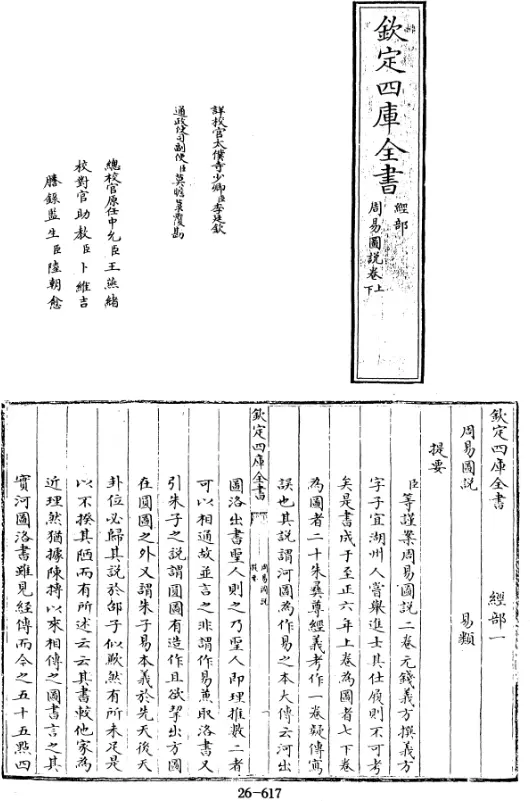 欽定四庫全書
經部
周易圖說卷上下
詳校官太僕寺少卿臣李廷欽
通政使司副使臣莫瞻菉覆勘
總校官原任中允臣王燕緒
校對官助教臣卜維吉
謄錄監生臣陸朝愈
欽定四庫全書 經部一
周易圖說 易類
提要
臣等謹案周易圖說二卷元錢義方撰義方
字子宜湖州人嘗舉進士其仕履則不可考
矣是書成于至正六年上卷為圖者七下卷
為圖者二十朱彝尊經義考作一卷疑傳寫
誤也其說謂河圖為作易之本大傳云河出
欽定四庫全書 周易圖說 提要 一
圖洛出書聖人則之乃聖人即理推數二者
可以相通故並言之非謂作易兼取洛書又
引朱子之說謂圓圖有造作且欲挈出方圖
在圓圖之外又謂朱子易本義於先天後天
卦位必歸其說於邵子似歉然有所未足是
以不揆其陋而有所述云云其書較他家為
近理然猶據陳摶以來相傳之圖書言之其
實河圖洛書雖見經傳而今之五十五點四
26-617